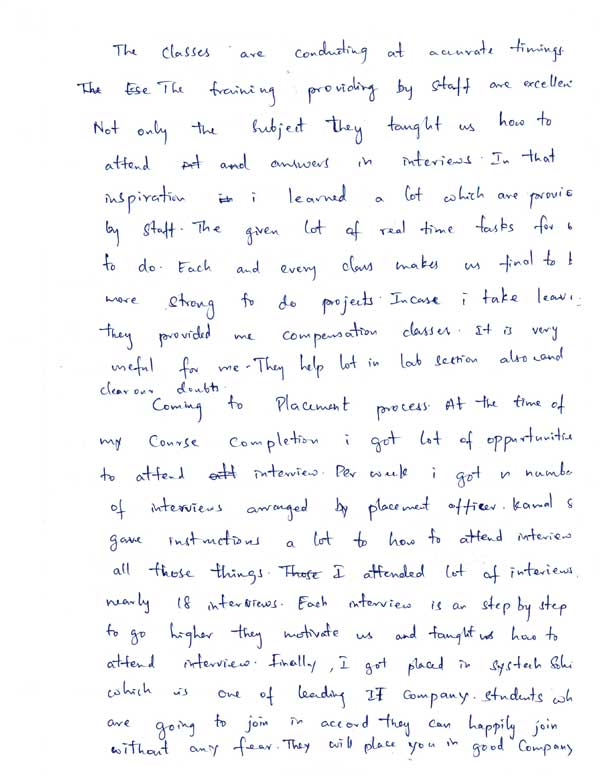 The classes are conducting at accurate timings.
The Ese The training providing by staff are excellen
Not only the subject they taught us how to
attend At and answers in interviews. In that
inspiration is i learned a lot which are provide
by staff. The given lot of real time tasks for
to do. Each and every class makes us final to b
more strong to do projects. Incase i take leave
they provided me compensation classes. It is very
useful for me. They help lot in lab section also and
clear our doubts.
Coming to Placement process. At the time of
my Course Completion i got lot of oppurtunitie
to attend att interview. Per week i got n numbe
of interviews arranged by placement officer. kamal s
gave instructions a lot to how to attend interview
all those things. Those I attended lot of interviews.
nearly 18 interviews. Each interview is an step by step
to go higher they motivate us and taught us how to
attend interview. Finally, I got placed in Systech
which is one of leading IT Company. Students wh
are going to join in accord they can happily join
without any fear. They will place you in good Company